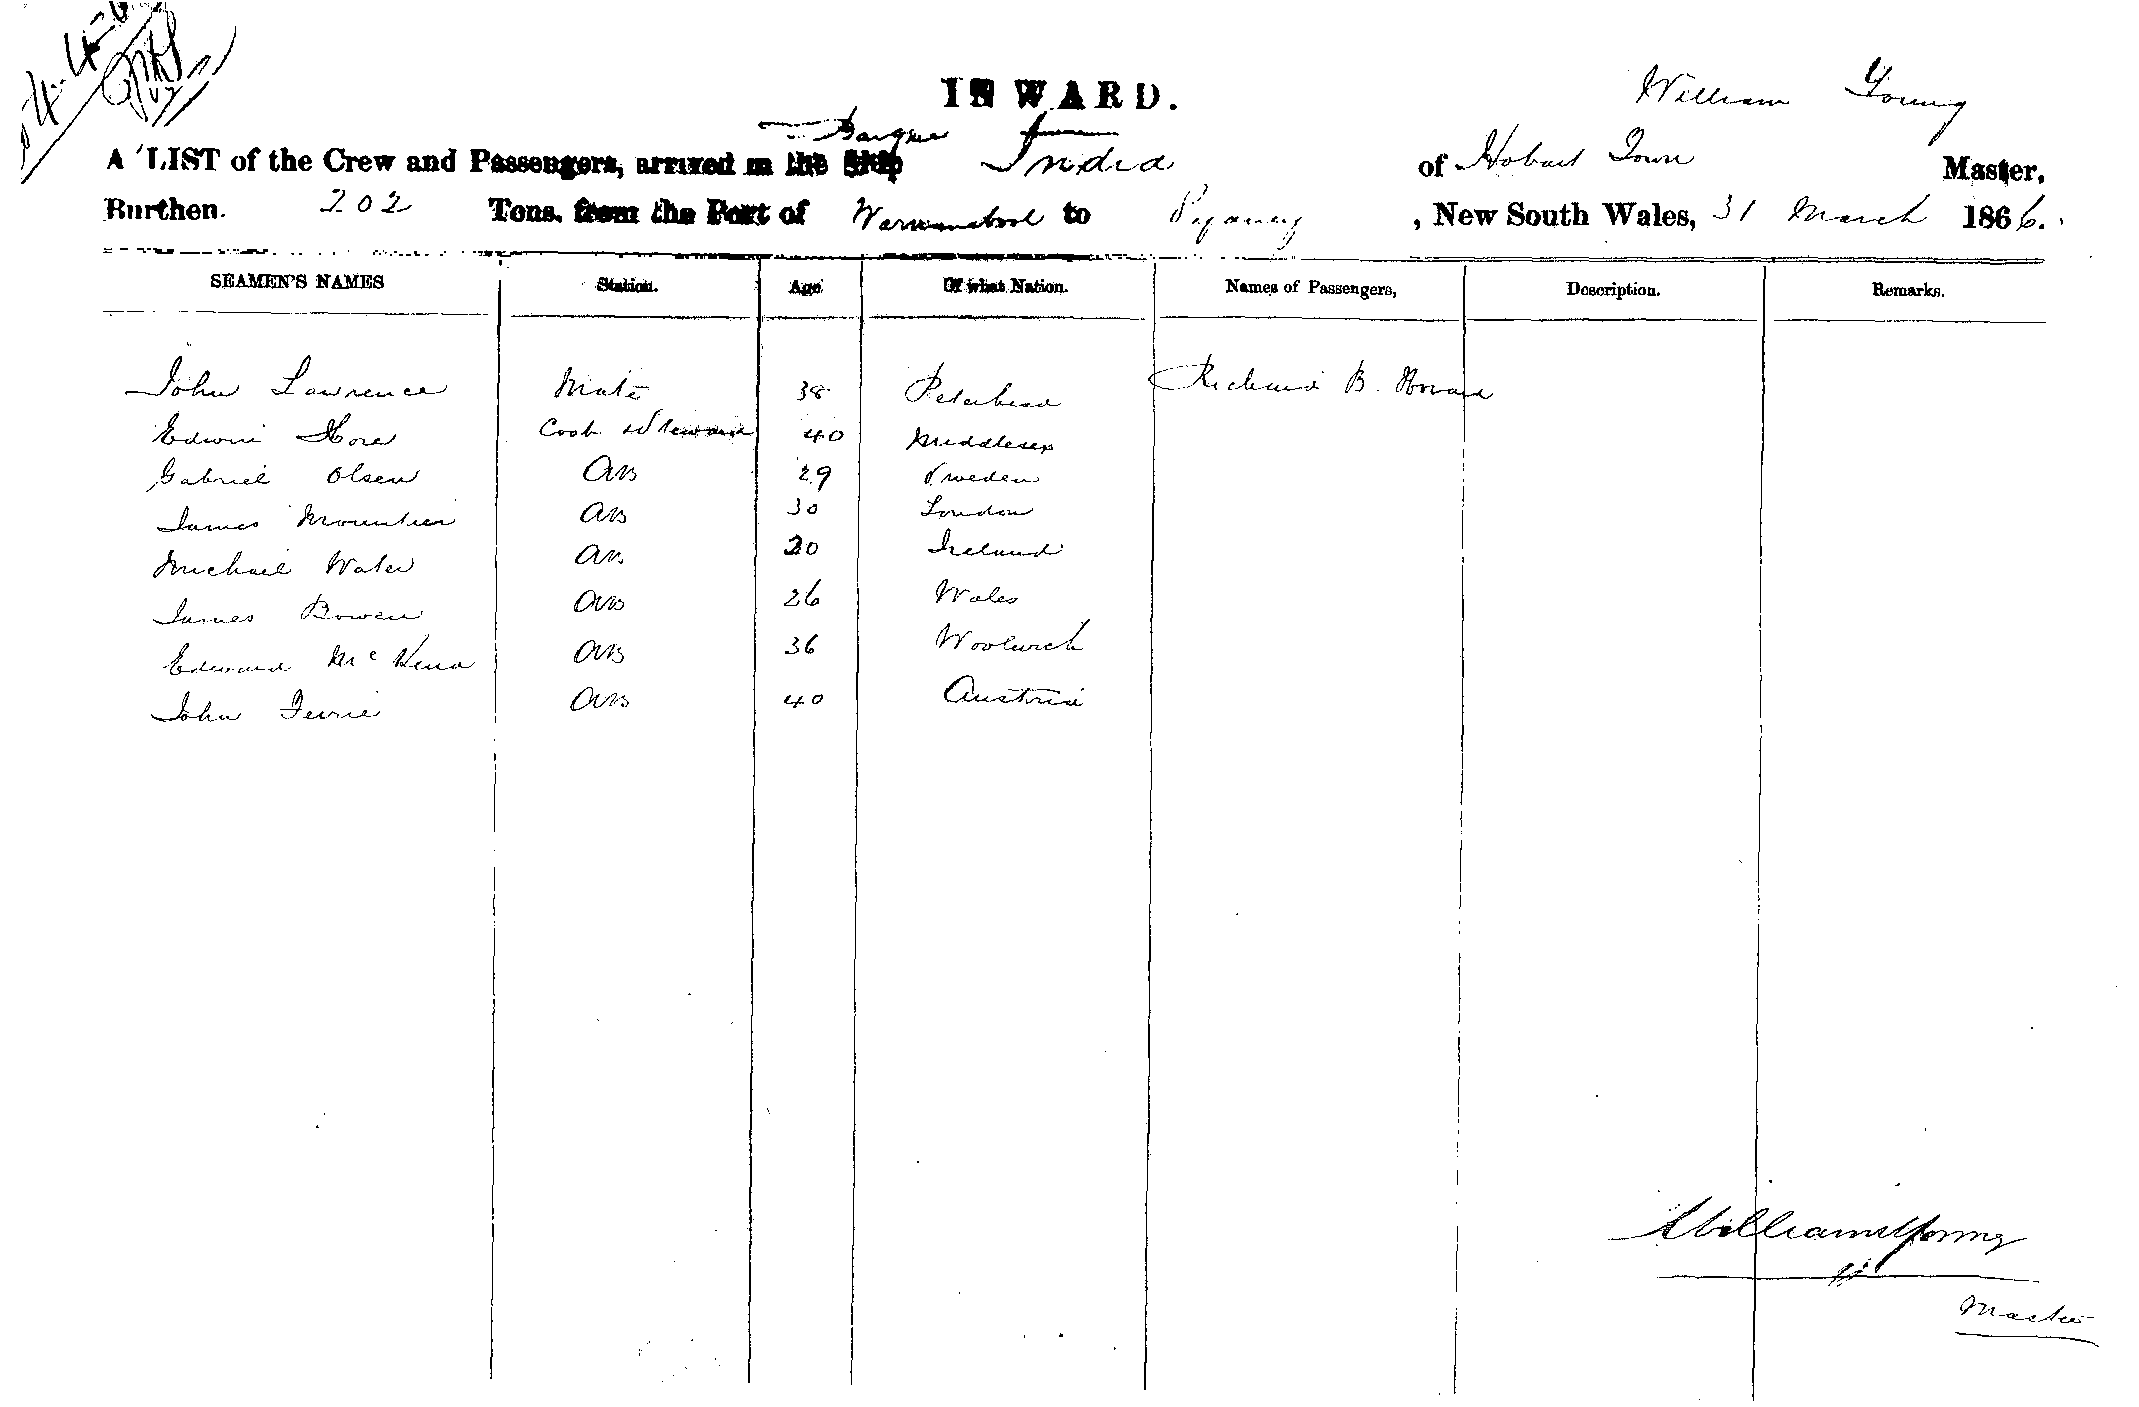 INWARD.
William Young
Barque
A LIST of the Crew and Passengers, arrived in the Ship India of Hobart Town Master,
Burthen. 202 Tons. from the Port of Warrnambool to Sydney, New South Wales, 31 March 1866.
SEAMEN'S NAMES Station. Age Of what Nation. Names of Passengers, Description. Remarks.
John Lawrence Mate 38 Peterhead Richard B. Howard
Edwin Hore Cook & Steward 40 Middlesex
Gabriel Olsen AB 29 Sweden
James AB 30 London
Michael Water AB 20 Ireland
James Bowen AB 26 Wales
Edward McKena AB 36 Woolwich
John AB 40 Austria
William Young
Master